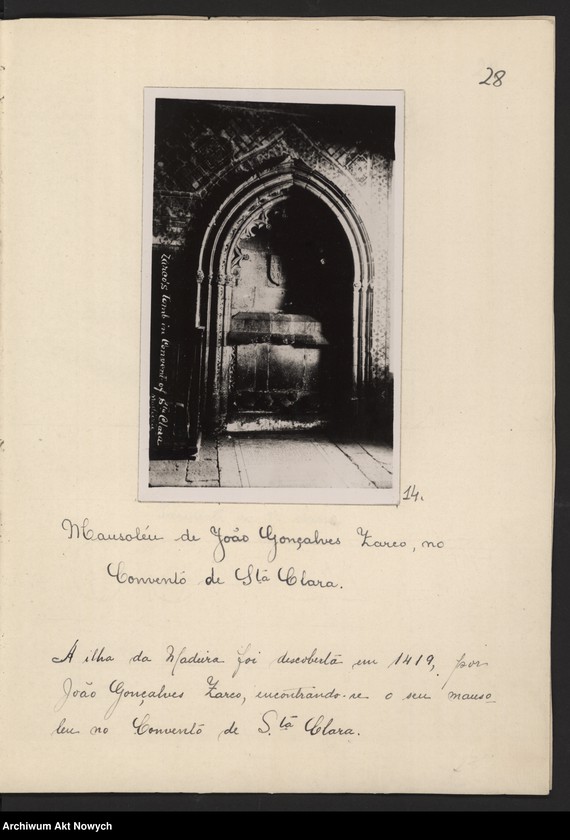 28
Zarco's tomb in Convent of Sta Clara
14.
Mausoléu de João Gonçalves Zarco, no
Conventó de Stã Clara.
A ilha da Madeira foi descobertã em 1419, por
João Gonçalves Zarco, encontrando-se o seu mauso
leu no Conventó de S.tã Clara.
Archiwum Akt Nowych